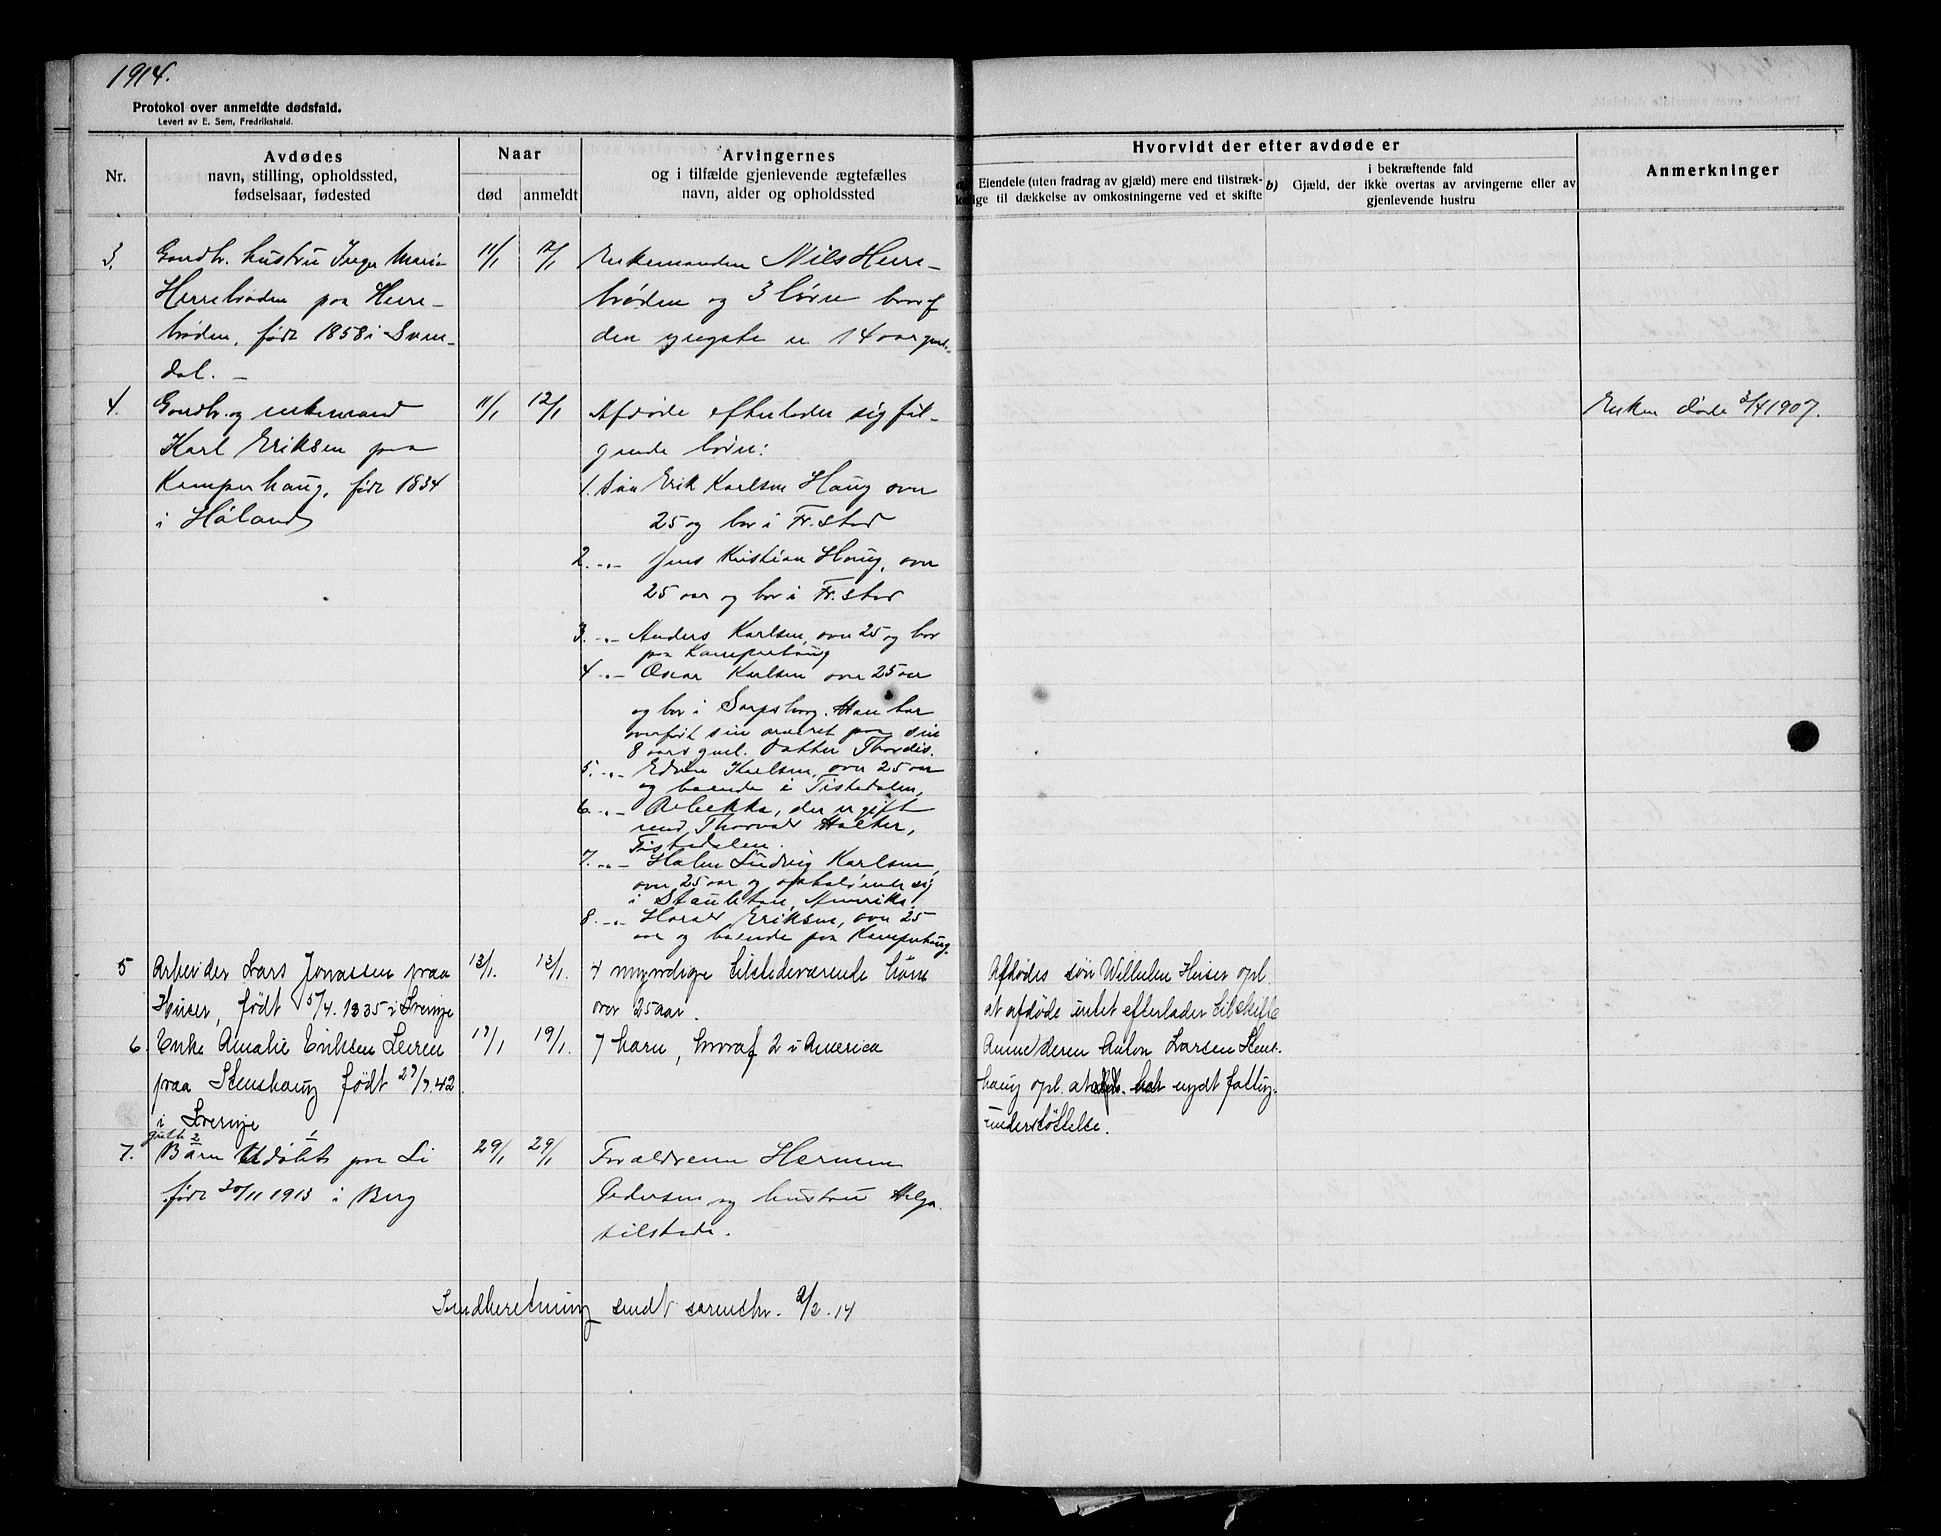 1914.
Protokol over anmeldte dødsfald.
Levert av E. Sem, Fredrikshald.
Nr.
Avdødes
navn, stilling, opholdssted,
fødselsaar, fødested
Naar
død
anmeldt
Arvingernes
og i tilfælde gjenlevende ægtefælles
navn, alder og opholdssted
Hvorvidt der efter avdøde er
Eiendele (uten fradrag av gjæld) mere end tilstræk-
kelige til dækkelse av omkostningerne ved et skifte
b)
i bekræftende fald
Gjæld, der ikke overtas av arvingerne eller av
gjenlevende hustru
Anmerkninger
3.
Gaardbr. hustru Inger Marie
Herrebrøden paa Herre-
brøden, født 1858 i
dal. —
11/1
12/1
Enkemanden Nils Herre-
brøden og 3 børn hvoraf
den yngste er 14 aar
4.
Gaardbr. og enkemand
Karl Eriksen paa
Kamperhaug, født 1834
i Høland
11/1
12/1
Afdøde efterlader sig føl-
gende børn:
1. Søn Erik Karlsen Haug over
25 og bor i Fr.stad
2. -"- Jens Kristian Haug, over
25 aar og bor i Fr.stad
3. -"- Anders Karlsen, over 25 og bor
paa Kamperhaug
4 -"- Oscar Karlsen over 25 aar
og bor i Sarpsborg. Han har
overført sin arveret paa sin
8 aars gml. datter Thordis.
5. -"- Edvin Karlsen, over 25 aar
og boende i Tistedalen,
6. -"- Rebekka, der er gift
med Thorvald Holter,
Tistedalen.
7. -"- Ludvig Karlsen,
over 25 aar og opholdende sig
i Amerika
8. -"- Harald Eriksen, over 25
aar og boende paa Kamperhaug.
Enken døde 3/4 1907.
5
Arbeider Lars Jonassen paa
Huser, født 5/4. 1835 i Sverige
13/1.
13/1.
4 myndige tilstedeværende børn
over 25 aar.
Afdødes søn Wilhelm Huser opl.
at afdøde intet efterlader til skifte
6.
Enke Amalie Eriksen Leiren
paa Stenshaug født 27/7.42
i Sverige
17/1
19/1.
7 barn, hvoraf 2 i America
Anmelderen Anton Larsen Stens-
haug opl. at afd. har nydt fattig-
understøttelse.
7.
gutt 2 1
Barn Udøbt paa Li
født 30/11 1913 i Berg
29/1
29/1
Forældrene Herman
Pedersen og hustru Helga
tilstede.
Indberetning sendt sorenskr. 2/2. 14